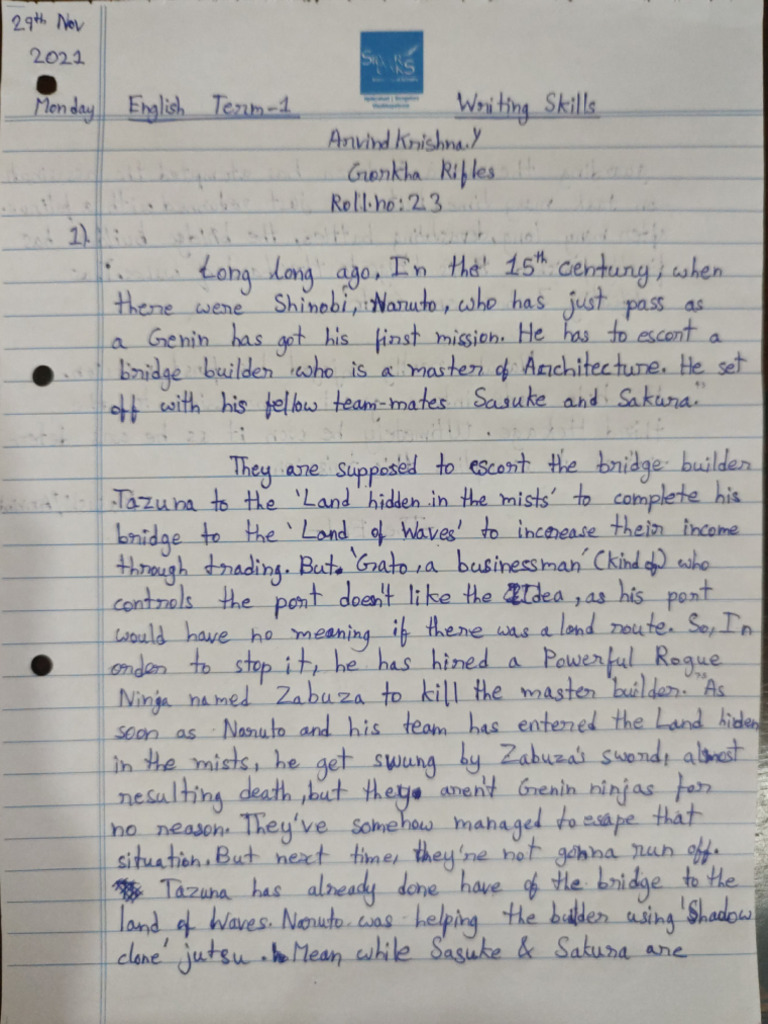 29th Nov
2021
Monday English Term-1 Writing Skills
Arvind Krishna.Y
Gorkha Rifles
Roll.no: 23
1).
Long long ago, In the 15th century, when
there were Shinobi, Naruto, who has just pass as
a Genin has got his first mission. He has to escort a
bridge builder who is a master of Architecture. He set
off with his fellow team-mates Sasuke and Sakura."
They are supposed to escort the bridge builder
Tazuna to the 'Land hidden in the mists' to complete his
bridge to the 'Land of Waves' to increase their income
through trading. But 'Grato, a businessman' (kind of) who
controls the port doesn't like the Idea, as his port
would have no meaning if there was a land route. So, In
order to stop it, he has hired a Powerful Rogue
Ninja named Zabuza to kill the master builder. As
soon as Naruto and his team has entered the Land hiden
in the mists, he get swung by Zabuza's sword, almost
resulting death, but they aren't Genin ninjas for
no reason. They've somehow managed to esape that
situation. But next time, they're not gonna run off.
Tazuna has already done have of the bridge to the
land of Waves. Naruto was helping the builder using 'Shadow
clone' jutsu. Mean while Sasuke & Sakura are